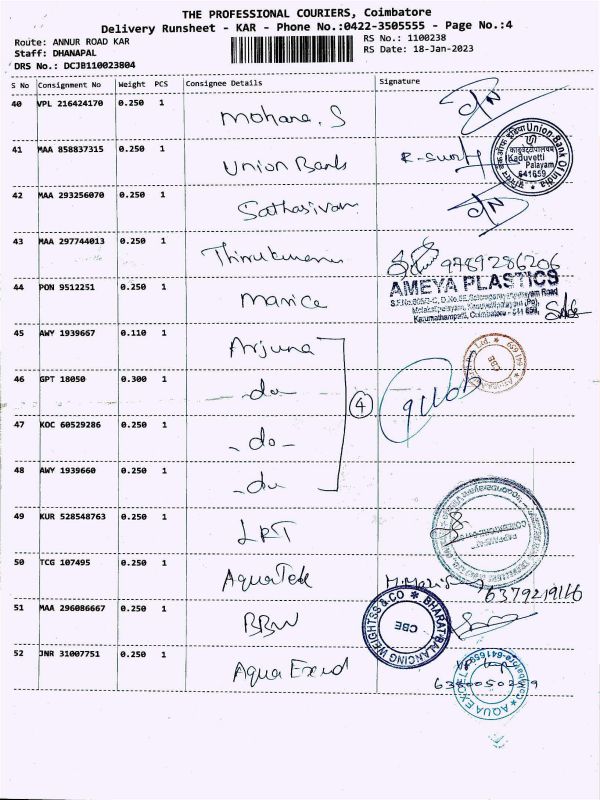 THE PROFESSIONAL COURIERS, Coimbatore
Delivery Runsheet - KAR - Phone No.:0422-3505555 - Page No.:4
Route: ANNUR ROAD KAR
Staff: DHANAPAL
DRS No.: DCJB110023804
RS No.: 1100238
RS Date: 18-Jan-2023
S No Consignment No Weight PCS Consignee Details Signature
40 VPL 216424170 0.250 1 Mohana. S
41 MAA 858837315 0.250 1 Union Bank
Union Bank Of India
Kaduvetti Palayam
641659
42 MAA 293256070 0.250 1 Sathasivam
43 MAA 297744013 0.250 1 Thirukumaran 9789286206
44 PON 9512251 0.250 1 Manica
AMEYA PLASTICS
Karumathampatti, Coimbatore - 641 659.
45 AWY 1939667 0.110 1 Arjuna
CBE
46 GPT 18050 0.300 1 -do-
4
47 KOC 60529286 0.250 1 -do-
48 AWY 1939660 0.250 1 -do-
49 KUR 528548763 0.250 1 LRT
50 TCG 107495 0.250 1 AquaTek 6379219116
51 MAA 296086667 0.250 1 BBW
BHARAT BALANCING WEIGHTSS & CO
CBE
52 JNR 31007751 0.250 1 Aqua Excel